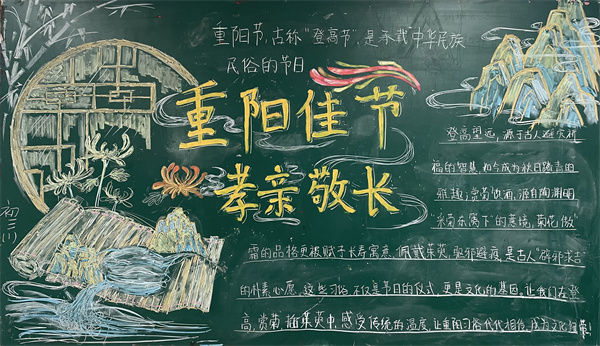 重阳节,古称“登高节”,是承载中华民族
民俗的节日
重阳佳节
孝亲敬长
登高望远,源于古人避灾祈
福的智慧,如今成为秋日踏青的
雅趣;赏菊饮酒,源自陶渊明
“采菊东篱下”的意境,菊花傲
霜的品格更被赋予长寿寓意,佩戴茱萸,驱邪避疫,是古人“辟邪求吉”
的朴素心愿,这些习俗,不仅是节日的仪式,更是文化的基因,让我们在登
高,赏菊,插茱萸中,感受传统的温度,让重阳习俗代代相传,成为文化
初三